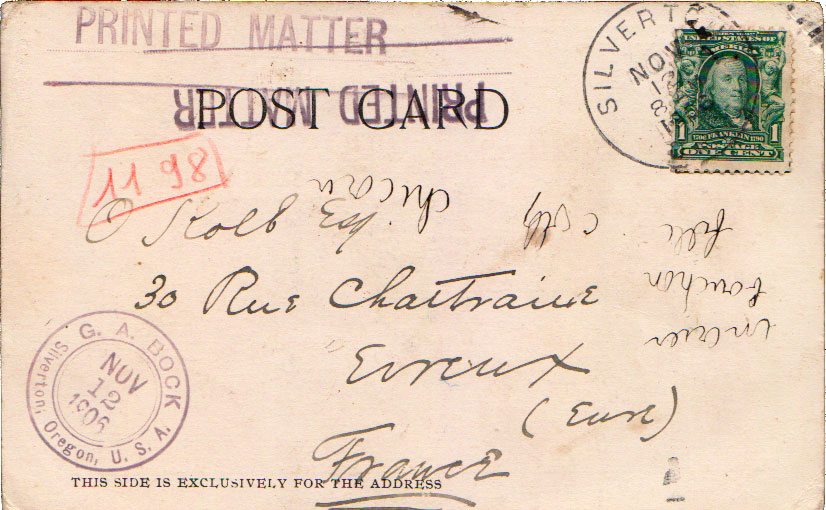 PRINTED MATTER
PRINTED MATTER
POST CARD
SILVERTO
NOV
UNITED STATES OF
AMERICA
1706 FRANKLIN 1790
POSTAGE
1 ONE CENT 1
11 98
O Kolb Esq.
30 Rue Chartraine
Evreux
(Eure)
France
G. A. BOCK
NOV
12
1906
Silverton, Oregon, U. S. A.
THIS SIDE IS EXCLUSIVELY FOR THE ADDRESS